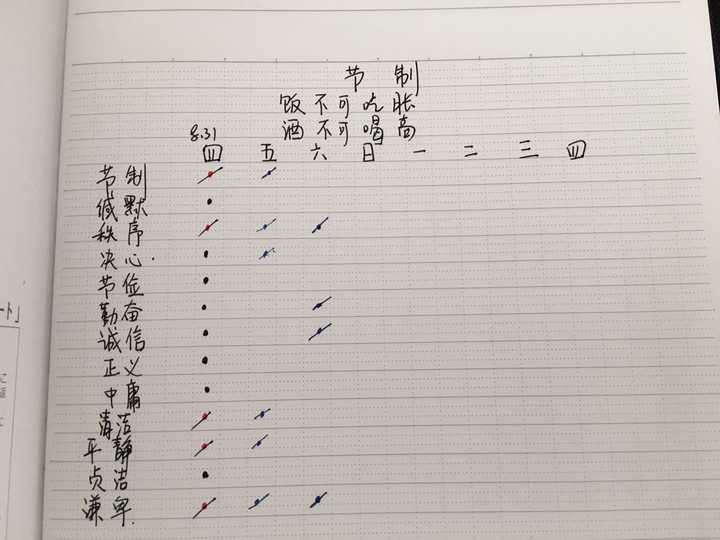 节 制
饭 不 可 吃 胀
酒 不 可 喝 高
8.31
四 五 六 日 一 二 三 四
节 制
缄 默
秩 序
决 心.
节 俭
勤 奋
诚 信
正 义
中 庸
清 洁
平 静
贞 洁
谦 卑.